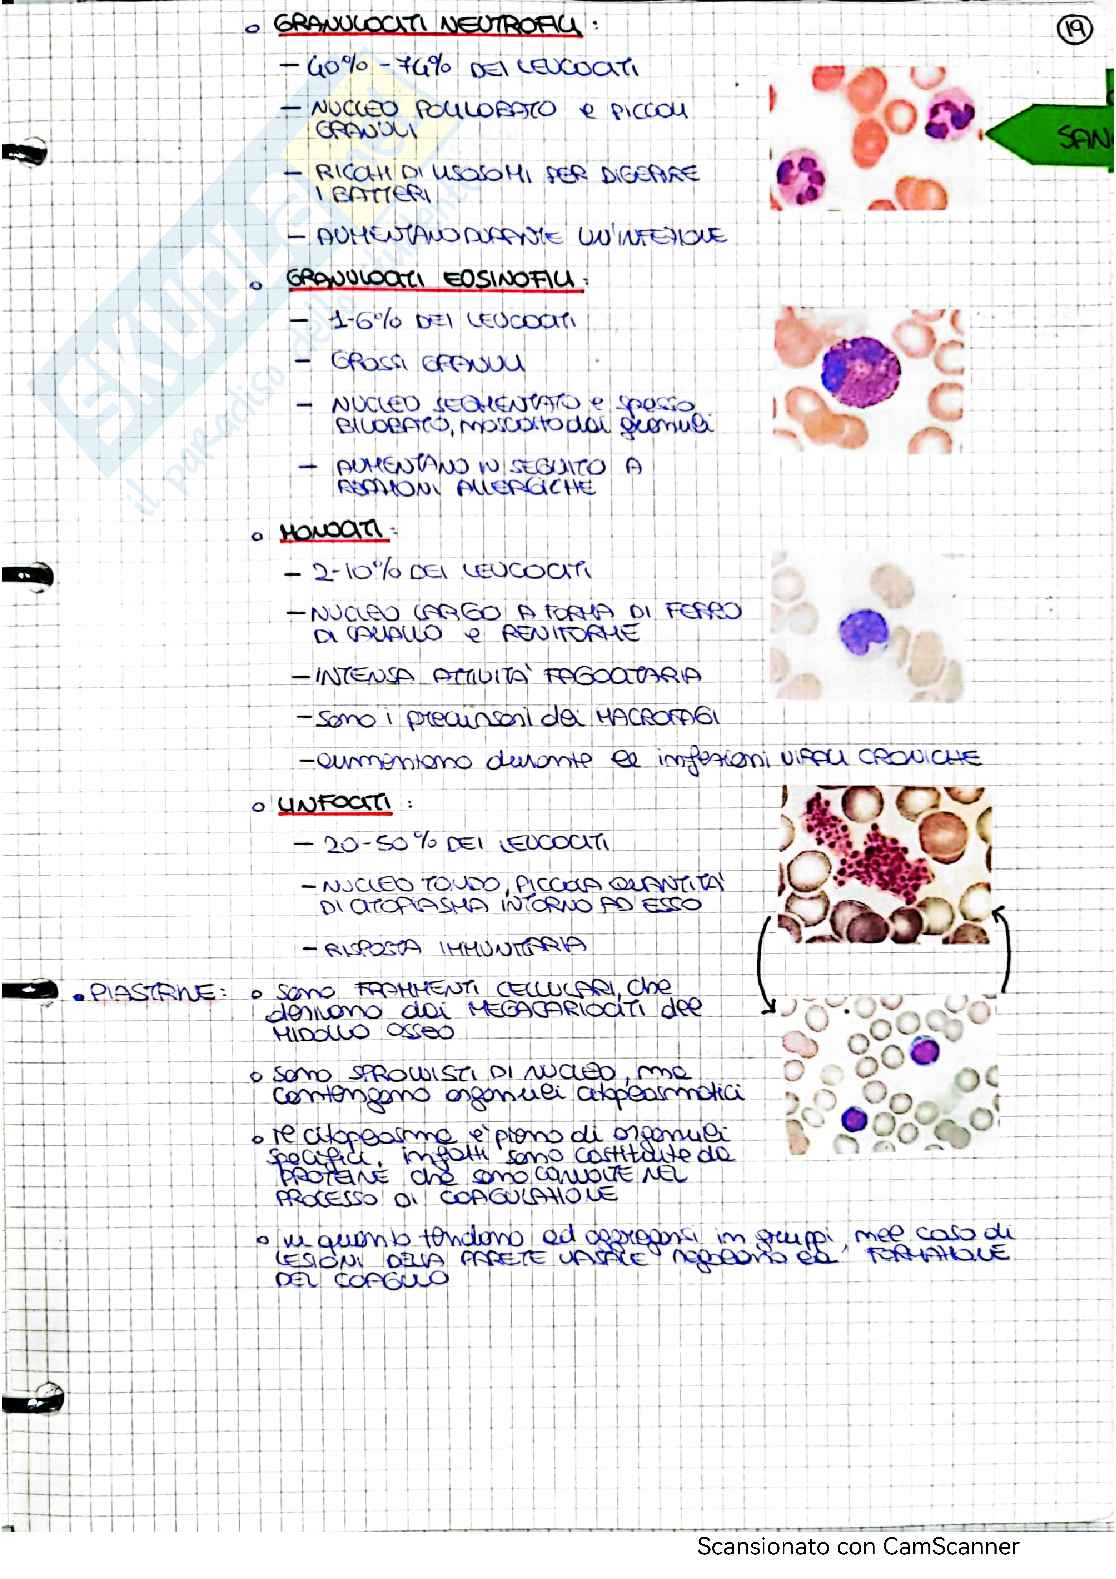 GRANULOCITI NEUTROFILI :
19
- 40% - 74% DEI LEUCOCITI
- NUCLEO POLILOBATO e PICCOLI
GRANULI
SAN
- RICCHI DI LISOSOMI PER DIGERIRE
I BATTERI
- AUMENTANO DURANTE UN'INFEZIONE
GRANULOCITI EOSINOFILI :
- 1-6% DEI LEUCOCITI
- GROSSI GRANULI
- NUCLEO SEGMENTATO e spesso
BILOBATO, nascosto dai granuli
- AUMENTANO IN SEGUITO A
REAZIONI ALLERGICHE
MONOCITI :
- 2-10% DEI LEUCOCITI
- NUCLEO LARGO A FORMA DI FERRO
DI CAVALLO e RENIFORME
- INTENSA ATTIVITÀ FAGOCITARIA
- sono i precursori dei MACROFAGI
- aumentano durante le infezioni VIRALI CRONICHE
LINFOCITI :
- 20-50% DEI LEUCOCITI
- NUCLEO TONDO, PICCOLA QUANTITÀ
DI CITOPLASMA INTORNO AD ESSO
- RISPOSTA IMMUNITARIA
• PIASTRINE : sono FRAMMENTI CELLULARI, che
derivano dai MEGACARIOCITI del
MIDOLLO OSSEO
sono SPROVVISTI DI NUCLEO, ma
contengono organuli citoplasmatici
il citoplasma è pieno di organuli
specifici, infatti sono costituite da
PROTEINE che sono COINVOLTE NEL
PROCESSO DI COAGULAZIONE
in quanto tendono ad aggregarsi in gruppi, nel caso di
LESIONI DELLA PARETE VASALE regolano la FORMAZIONE
DEL COAGULO
SKUOLA
il paradiso dello studente
Scansionato con CamScanner